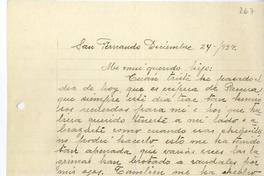 267
San Fernando Diciembre 24-/932.
Mi muy querido hijo:
Cuán triste he pasado el
día de hoy, que es víspera de Pascua
que siempre este día trae tan
recuerdos para mí i los que hu
biera querido tenerte a mi lado i a
brazarte como cuando eras chiquito
no poder hacerlo esto me ha tenido
tan apenada, que varias veces las lá
grimas han brotado a raudales por
mis ojos. También me ha